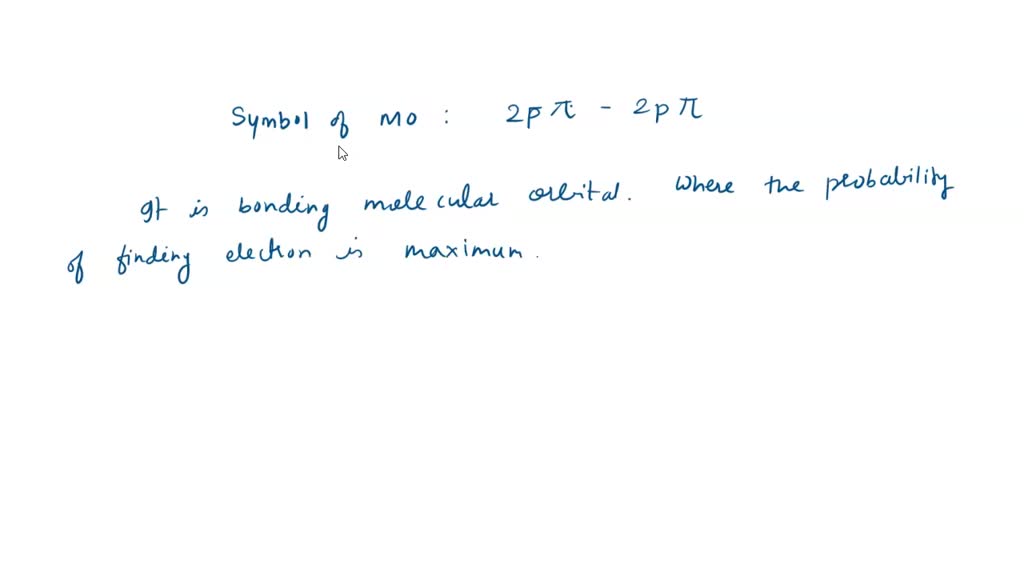 Symbol of MO : 2pπ - 2pπ
It is bonding molecular orbital. Where the probability
of finding electron is maximum.